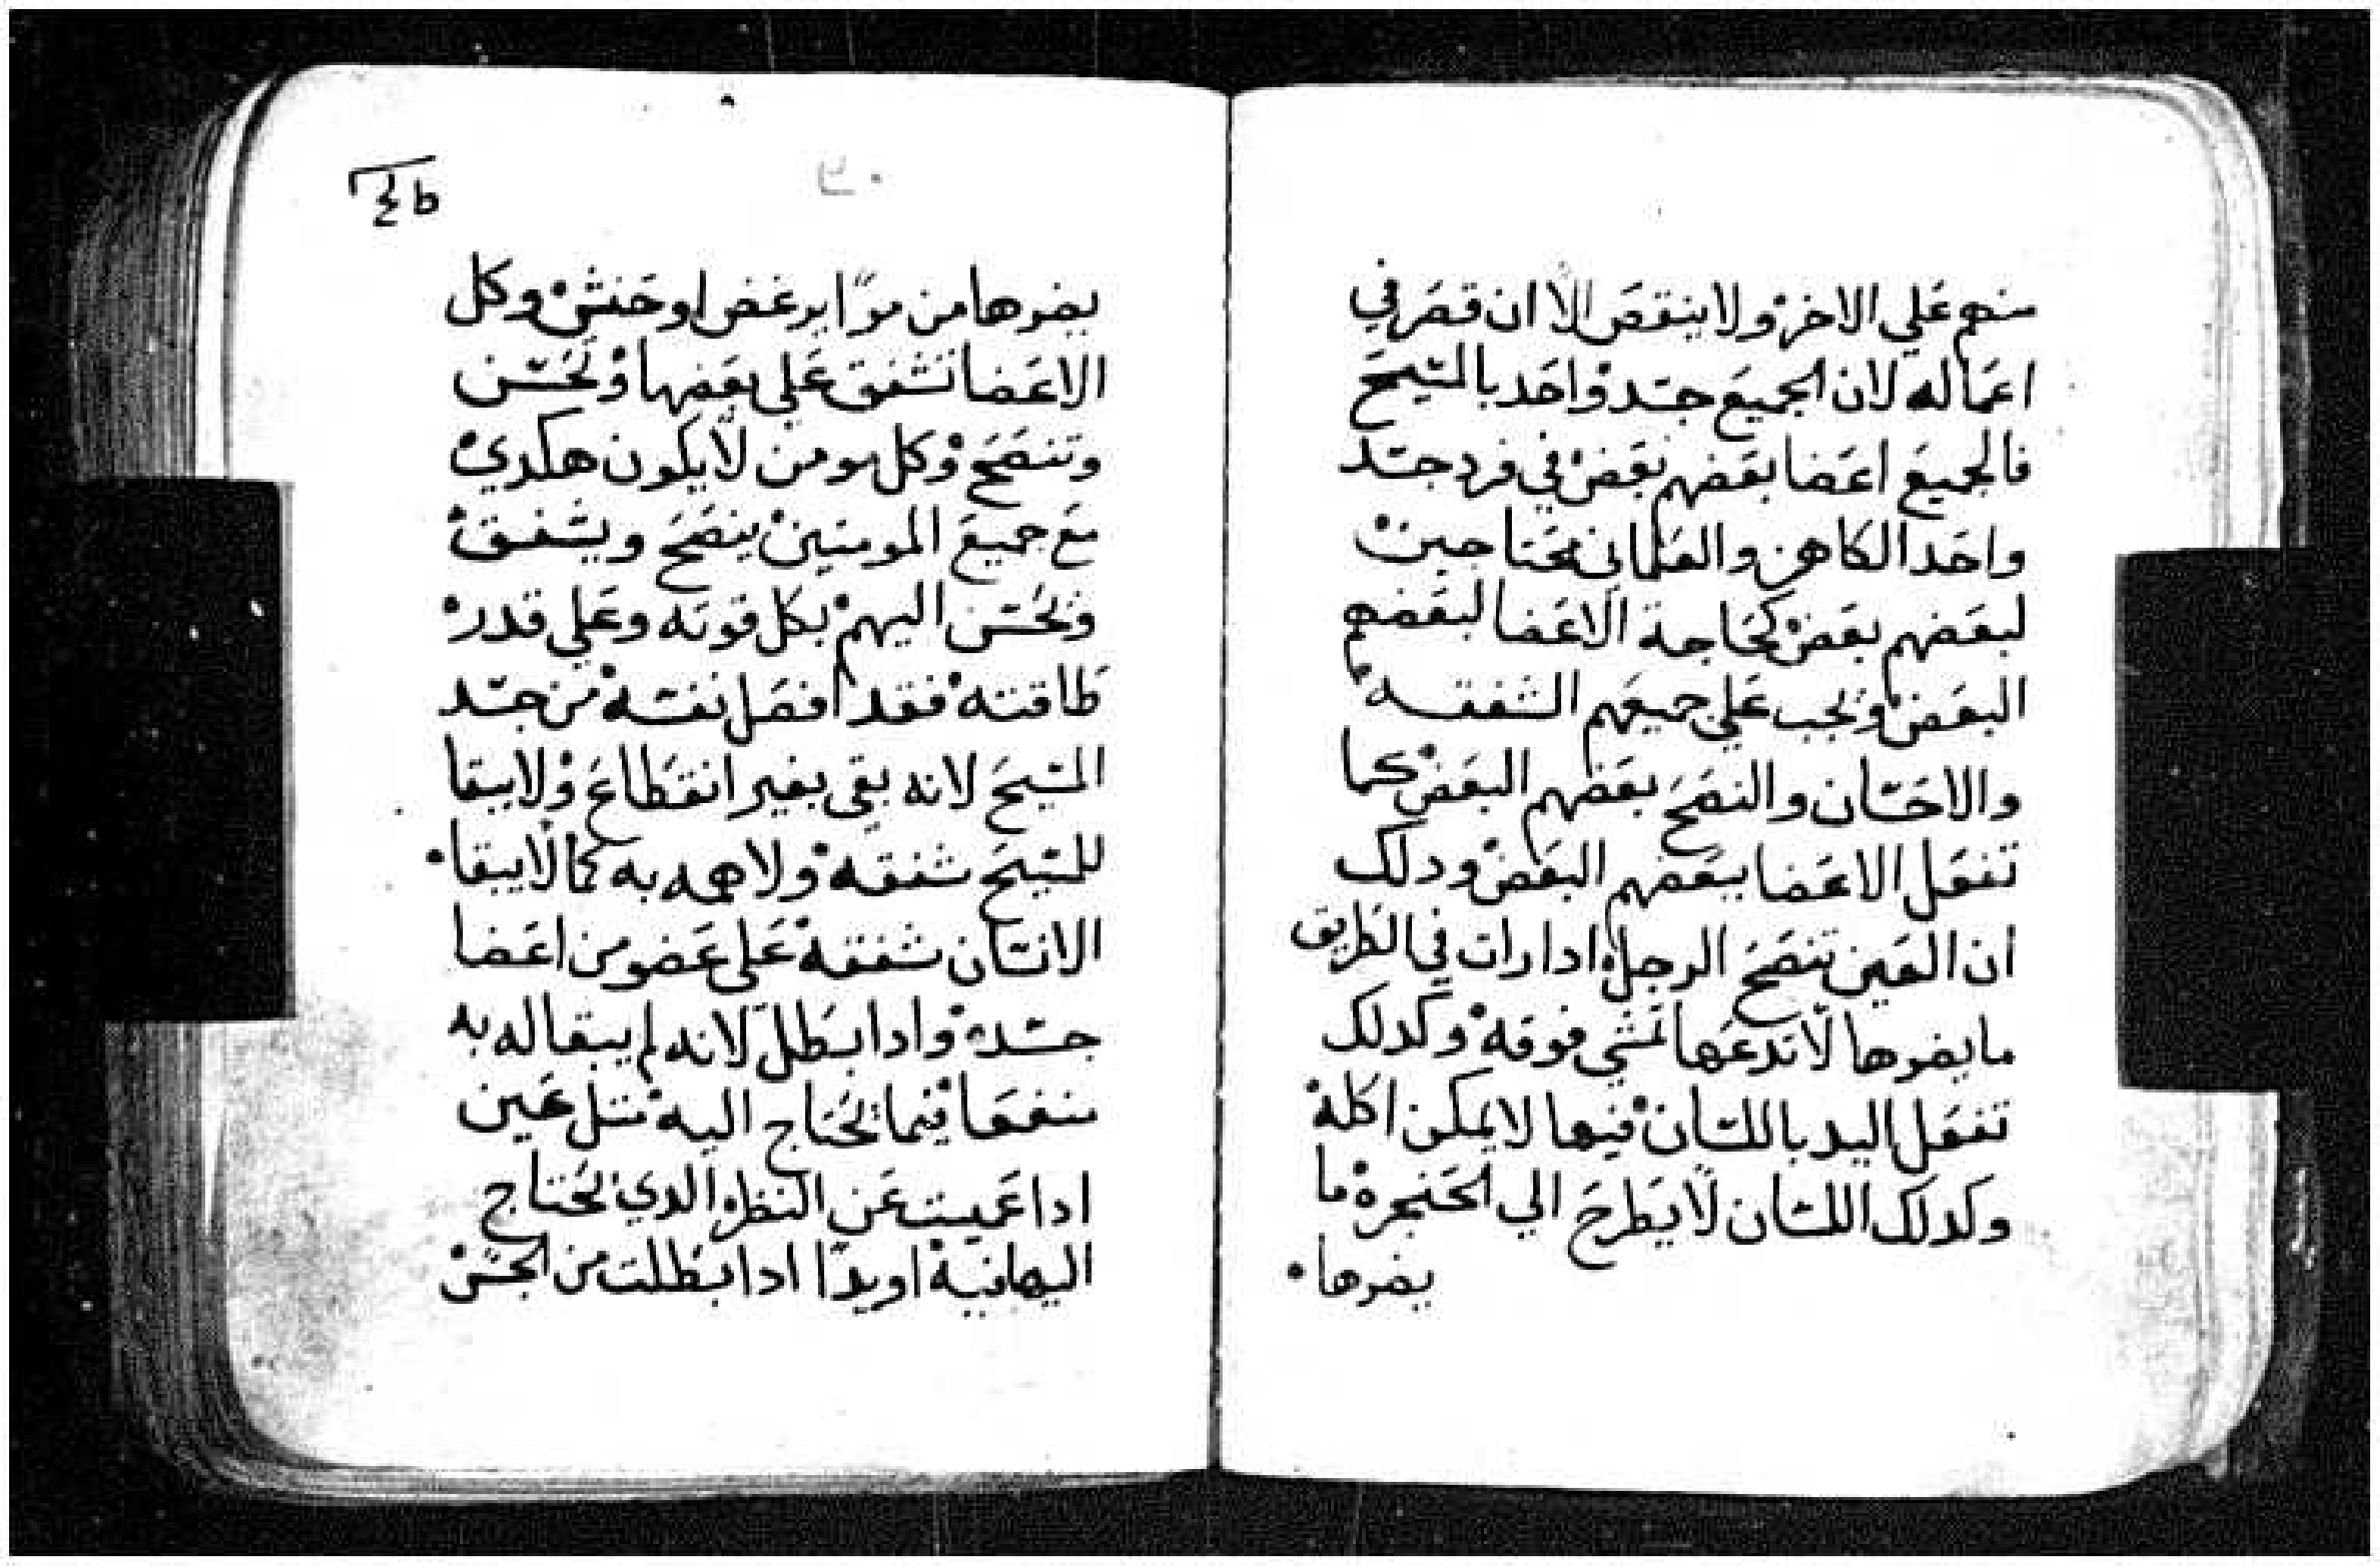 منهم علي الاخر ولا ينقص الا ان قصر في
اعماله لان الجميع جسد واحد بالمسيح
فالجميع اعضا بعضهم بعض في فرد جسد
واحد الكاهن والعلماني محتاجين
لبعضهم بعض كحاجة الاعضا لبعضهم
البعض ويجب علي جميعهم الشفقه
والاحسان والنصح بعضهم البعض كما
تفعل الاعضا ببعضهم البعض ودلك
ان العين تنصح الرجل ادا رات في الطريق
ما يضرها لا تدعها تمشي فوقه وكدلك
تفعل اليد باللسان فيها لا يمكن اكله
وكدلك اللسان لا يطرح الي الحنجره ما
يضرها
٣٠
٤b
يضرها من مرا او حنش وكل
الاعضا تشفق علي بعضها وتحسن
وتنصح وكل مومن لا يكون هكدي
مع جميع المومنين ينصح ويشفق
ويحسن اليهم بكل قوته وعلي قدر
طاقته فقد افصل نفسه من جسد
المسيح لانه بقي بغير انقطاع ولا يبقا
للمسيح شفقه ولا همه به كما لا يبقا
الانسان شفقه علي عضو من اعضا
جسده وادا بطل لانه لم يبقا له به
منفعا فيما يحتاج اليه متل عين
ادا عميت عن النظر الدي يحتاج
اليها فيه او يدا ادا بطلت من الجس